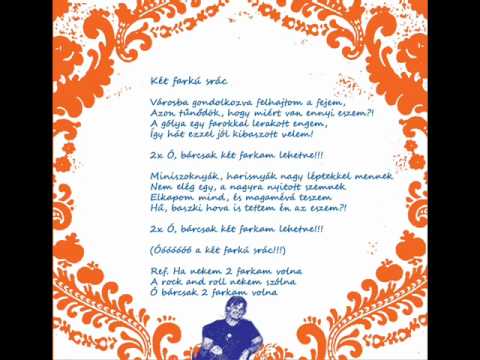 Két farkú srác
Városba gondolkozva felhajtom a fejem,
Azon tűnődök, hogy miért van ennyi eszem?!
A gólya egy farokkal lerakott engem,
Így hát ezzel jól kibaszott velem!
2x Ó, bárcsak két farkam lehetne!!!
Miniszoknyák, harisnyák nagy léptekkel mennek
Nem elég egy, a nagyra nyitott szemnek
Elkapom mind, és magamévá teszem
Hű, baszki hova is tettem én az eszem?!
2x Ó, bárcsak két farkam lehetne!!!
(Óóóóóóó a két farkú srác!!!)
Ref. Ha nekem 2 farkam volna
A rock and roll nekem szólna
Ó bárcsak 2 farkam volna